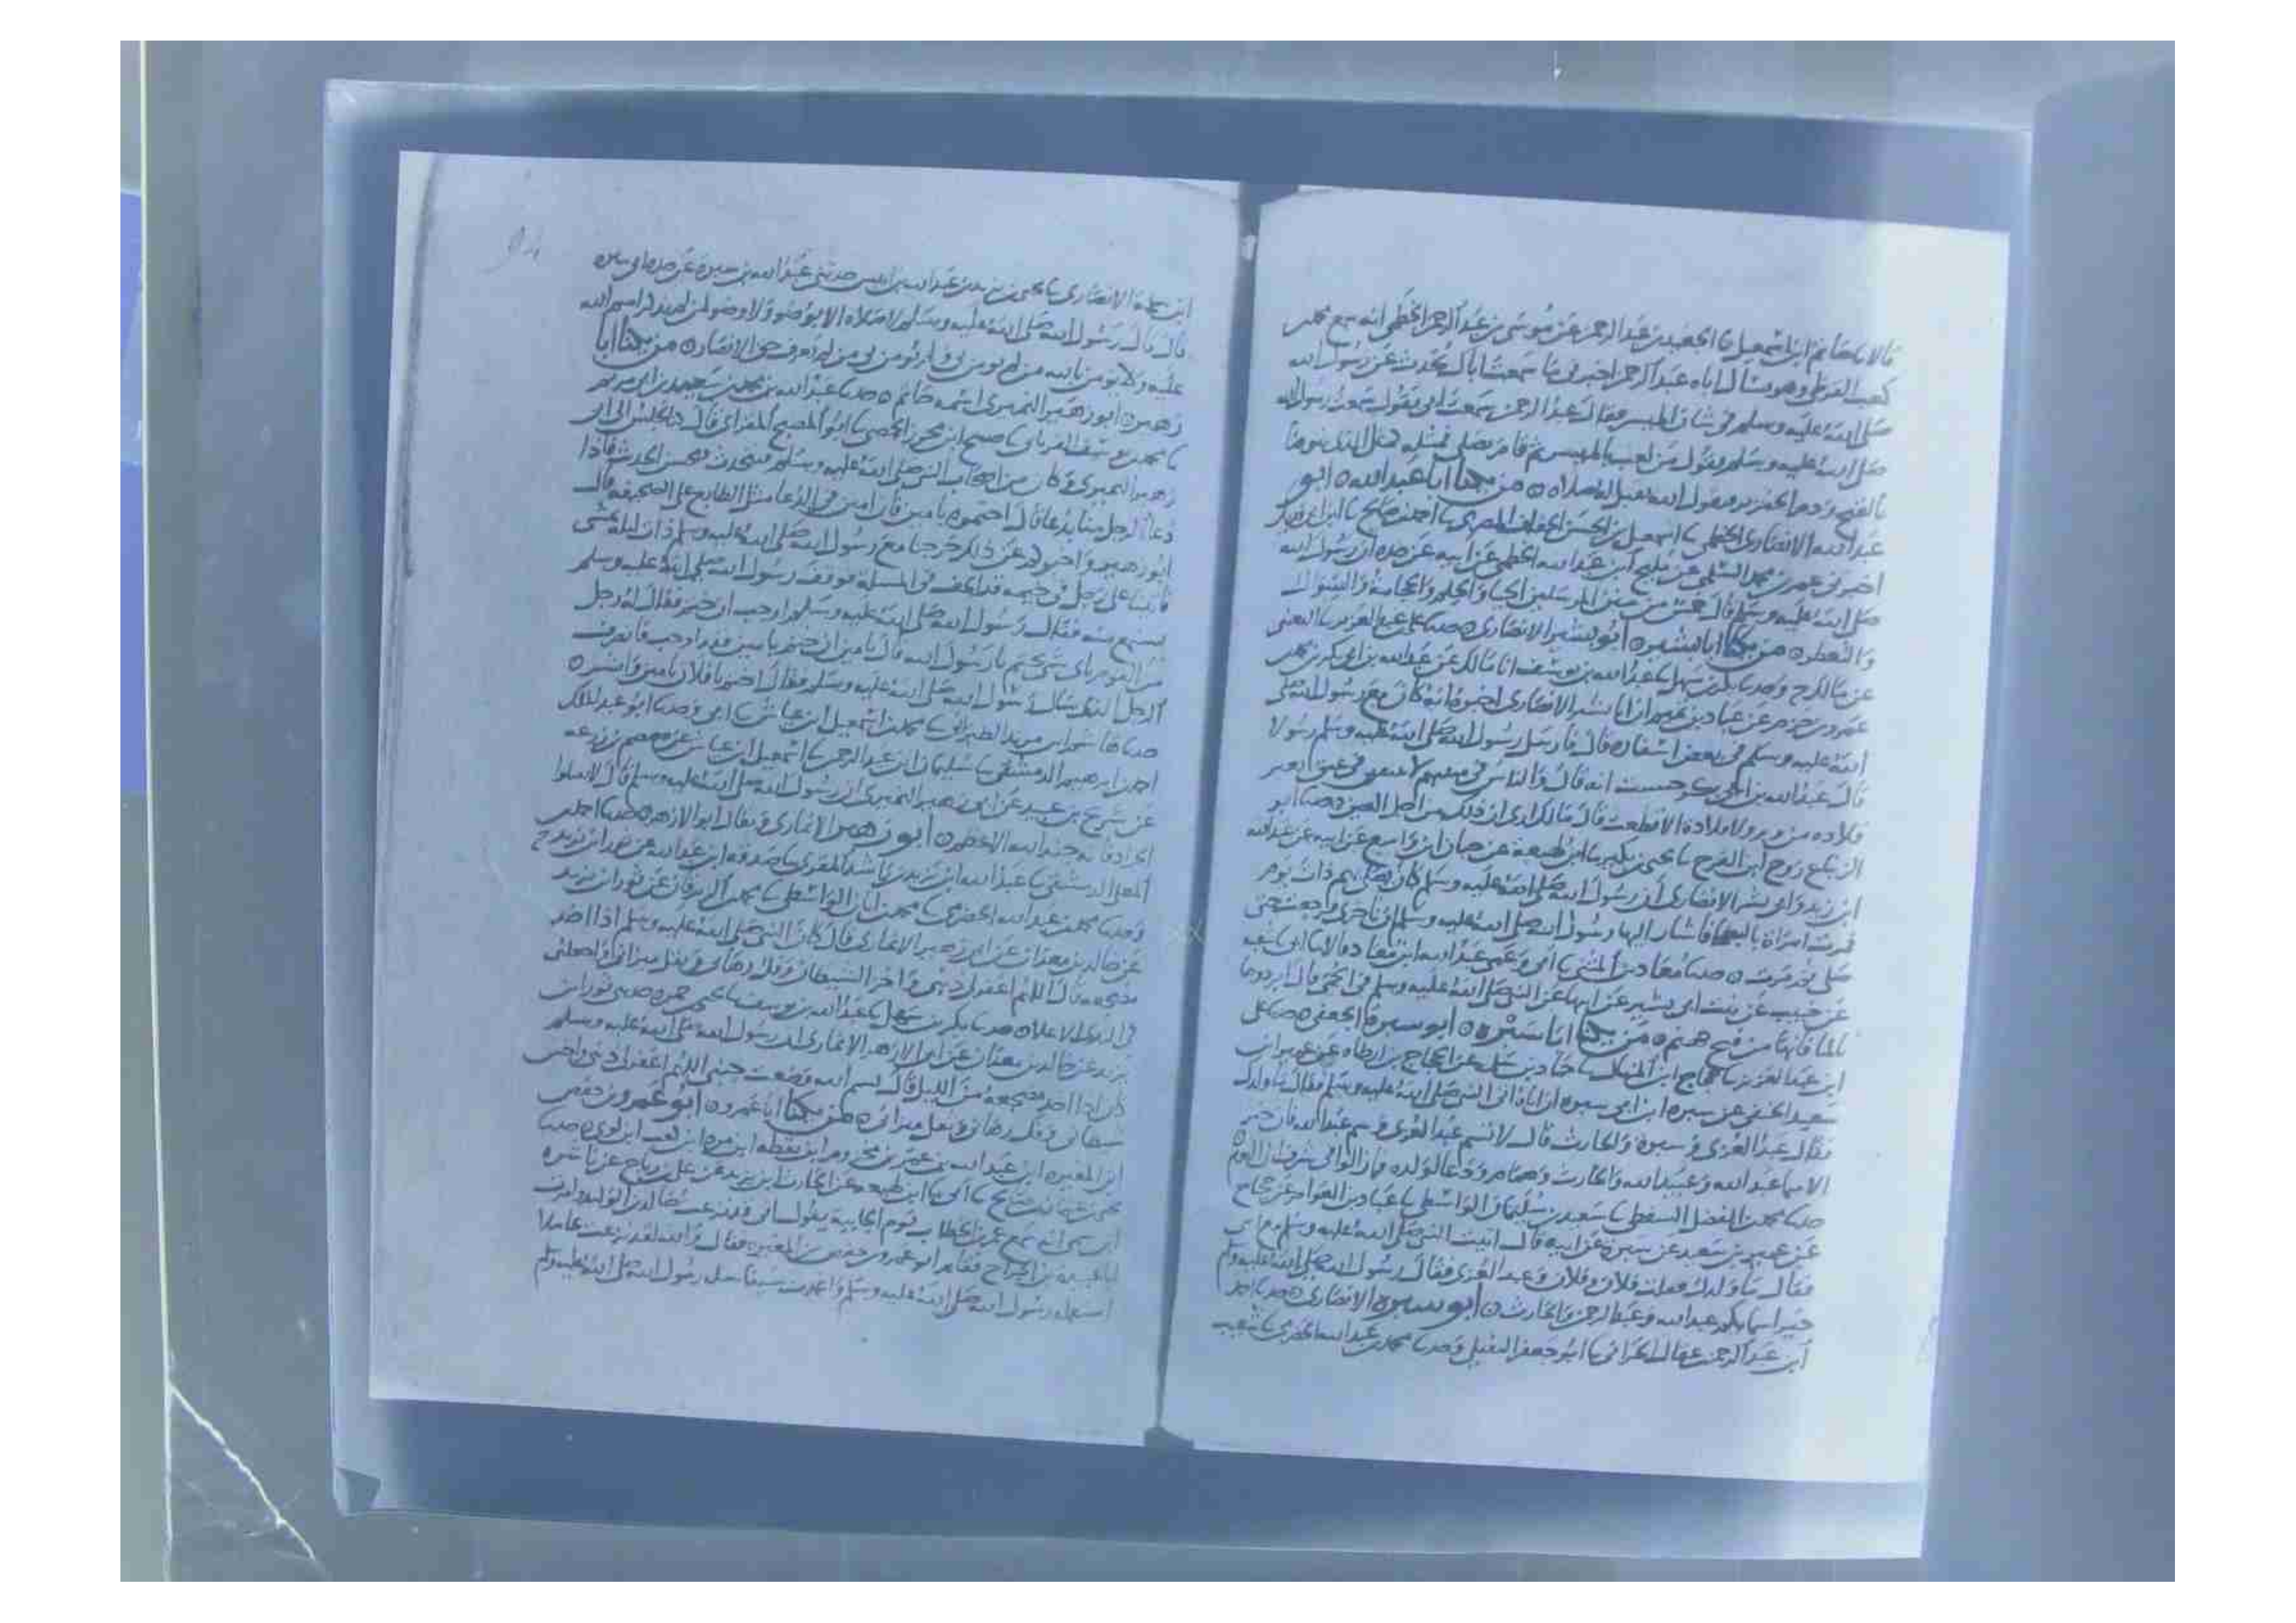 قالا نا حاتم ابن اسمعيل نا الجعيد بن عبد الرحمن عن موسى بن عبد الرحمن الخطمي انه سمع محمد بن
كعب القرظي وهو يسأل اباه عبد الرحمن اخبرني ما سمعت اباك يحدث عن رسول الله
صلى الله عليه وسلم في شان الميسر فقال عبد الرحمن سمعت ابي يقول سمعت رسول الله
صلى الله عليه وسلم يقول من لعب بالميسر ثم قام يصلي فمثله مثل الذي يتوضا
بالقيح ودم الخنزير يقول الله لا يقبل له صلاه ه من يكنا ابا عبد الله ه ابو
عبد الله الانصاري الخطمي نا اسمعيل بن الحسن الخفاف المصري نا احمد بن صالح نا ابن ابي فديك
اخبرني عمر بن محمد الاسلمي عن مليح ابن عبد الله الخطمي عن ابيه عن جده ان رسول الله
صلى الله عليه وسلم قال خمس من سنن المرسلين الحيا والحلم والحجامة والسواك
والتعطر ه من يكنا ابا بشير ه ابو بشير الانصاري ه حدثنا علي بن عبد العزيز نا القعنبي
عن مالك ح وحدثنا بكر بن سهل نا عبد الله بن يوسف انا مالك عن عبد الله بن ابي بكر بن محمد بن
عمرو بن حزم عن عباد بن تميم ان ابا بشير الانصاري اخبره انه كان مع رسول الله صلى
الله عليه وسلم في بعض اسفاره قال فارسل رسول الله صلى الله عليه وسلم رسولا
قال عبد الله بن ابي بكر حسبت انه قال والناس في مبيتهم لا تبقين في عنق بعير
قلاده من وتر ولا قلادة الا قطعت قال مالك ارى ان ذلك من اجل العين ه حدثنا ابو
الزنباع روح ابن الفرج نا يحيى بن بكير نا ابن لهيعة عن حبان ابن واسع عن ابيه عن عبد الله
ابن زيد وابي بشر الانصاري ان رسول الله صلى الله عليه وسلم كان يصلي بهم ذات يوم
فمرت امراة بالبطحا فاشار اليها رسول الله صلى الله عليه وسلم ان تاخري فرجعت حتى
صلى ثم مرت ه حدثنا معاذ بن المثنى نا ابي وعمي عبد الله ابن معاذ قالا نا ابي نا شعبه
عن خبيب عن بنت ابي بشير عن ابيها عن النبي صلى الله عليه وسلم في الحمى قال ابردوها
بالما فانها من فيح جهنم ه من يكنا ابا سبره ه ابو سبرة الجعفي ه حدثنا علي
ابن عبد العزيز نا حجاج ابن المنهال نا حماد بن سلمة عن الحجاج بن ارطاه عن عمير ابن
سعيد الحنفي عن سبره ابن ابي سبره ان اباه اتى النبي صلى الله عليه وسلم فقال ما ولدك
فقال عبد العزى وسبرة والحارث قال لا تسم عبد العزى وسم عبد الله فان خير
الاسما عبد الله وعبيد الله والحارث وهمام ودعا لولده
حدثنا محمد بن الفضل السقطي نا سعيد بن سليمان الواسطي نا عباد بن العوام عن حجاج
عن عمير بن سعيد عن سبرة عن ابيه قال اتيت النبي صلى الله عليه وسلم مع ابي
فقال ما ولدك فقلت فلان وفلان وعبد العزى فقال رسول الله صلى الله عليه وسلم
خير اسمايكم عبد الله وعبد الرحمن والحارث ه ابو سبره الانصاري ه حدثنا احمد
ابن عبد الرحمن بن عقال الحراني نا ابو جعفر النفيلي وحدثنا محمد بن عبد الله الحضرمي نا شعيب
94
ابن سلمة الانصاري نا يحيى بن يزيد بن عبد الله بن انيس حدثني عبد الله بن سبرة عن جده ابي سبره
قال قال رسول الله صلى الله عليه وسلم لا صلاه الا بوضو ولا وضو لمن لم يذكر اسم الله
عليه ولا يومن بالله من لم يومن بي ولم يومن بي من لم يعرف حق الانصار ه من يكنا ابا
زهير ه ابو زهير النميري اسمه حاتم ه حدثنا عبد الله بن محمد بن سعيد بن ابي مريم
نا محمد بن يوسف الفريابي نا صبيح ابن محرز الحمصي نا ابو المصبح المقراي قال كنا نجلس الى ابي
زهير النميري وكان من اصحاب النبي صلى الله عليه وسلم فيتحدث فيحسن الحديث فاذا
دعا الرجل منا بدعا قال اختموه بامين فان امين في الدعا مثل الطابع على الصحيفه قال
ابو زهير واخبركم عن ذلك خرجنا مع رسول الله صلى الله عليه وسلم ذات ليله نمشي
فاتينا على رجل في خيمه قد الحف في المسئلة فوقف رسول الله صلى الله عليه وسلم
يستمع منه فقال رسول الله صلى الله عليه وسلم اوجب ان ختم فقال له رجل
من القوم باي شي يختم يا رسول الله قال بامين ان ختم بامين فقد اوجب فانصرف
الرجل الذي سال رسول الله صلى الله عليه وسلم فقال اختم يا فلان بامين وابشر ه
حدثنا هاشم ابن مرثد الطبراني نا محمد بن اسمعيل ابن عياش نا ابي وحدثنا ابو عبد الملك
احمد بن ابرهيم الدمشقي نا سليمان ابن عبد الرحمن نا اسمعيل ابن عياش عن ضمضم بن زرعه
عن شريح بن عبيد عن ابي زهير النميري ان رسول الله صلى الله عليه وسلم قال لا تقتلوا
الجراد فانه جند الله الاعظم ه ابو زهير الانماري ويقال ابو الازهر ه حدثنا احمد بن
المعلى الدمشقي نا عبد الله ابن يزيد بن راشد المقري نا صدقه ابن عبد الله عن ثور ابن يزيد ح
وحدثنا محمد بن عبد الله الحضرمي نا محمد بن ابان الواسطي نا محمد بن الزبرقان عن ثور ابن يزيد
عن خالد بن معدان عن ابي زهير الانماري قال كان النبي صلى الله عليه وسلم اذا اخذ
مضجعه قال اللهم اغفر لي ذنبي واخز الشيطان وفك رهاني وثقل ميزاني واجعلني
في الندي الاعلا ه حدثنا بكر بن سهل نا عبد الله بن يوسف نا يحيى بن حمزه حدثني ثور ابن
يزيد عن خالد بن معدان عن ابي الازهر الانماري ان رسول الله صلى الله عليه وسلم
كان اذا اخذ مضجعه من الليل قال بسم الله وضعت جنبي اللهم اغفر لي ذنبي واخز
شيطاني وفك رهاني وثقل ميزاني ه من يكنا ابا عمرو ه ابو عمرو بن حفص
ابن المغيره ابن عبد الله بن عمر بن مخزوم ابن يقظه ابن مره ابن كعب ابن لوي ه حدثنا
يحيى بن عثمان بن صالح نا ابي نا ابن لهيعه عن الحارث ابن يزيد عن علي بن رباح عن ناشره
ابن سمي انه سمع عمر بن الخطاب يوم الجابية يقول اني قد نزعت خالد بن الوليد وامرت
ابا عبيده بن الجراح فقام ابو عمرو بن حفص بن المغيره فقال والله لقد نزعت عاملا
استعمله رسول الله صلى الله عليه وسلم واغمدت سيفا سله رسول الله صلى الله عليه وسلم